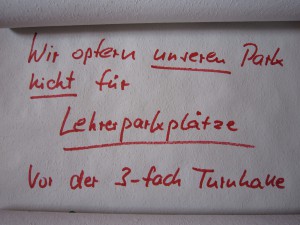 Wir opfern unseren Park
nicht für
Lehrerparkplätze
Vor der 3-fach Turnhalle